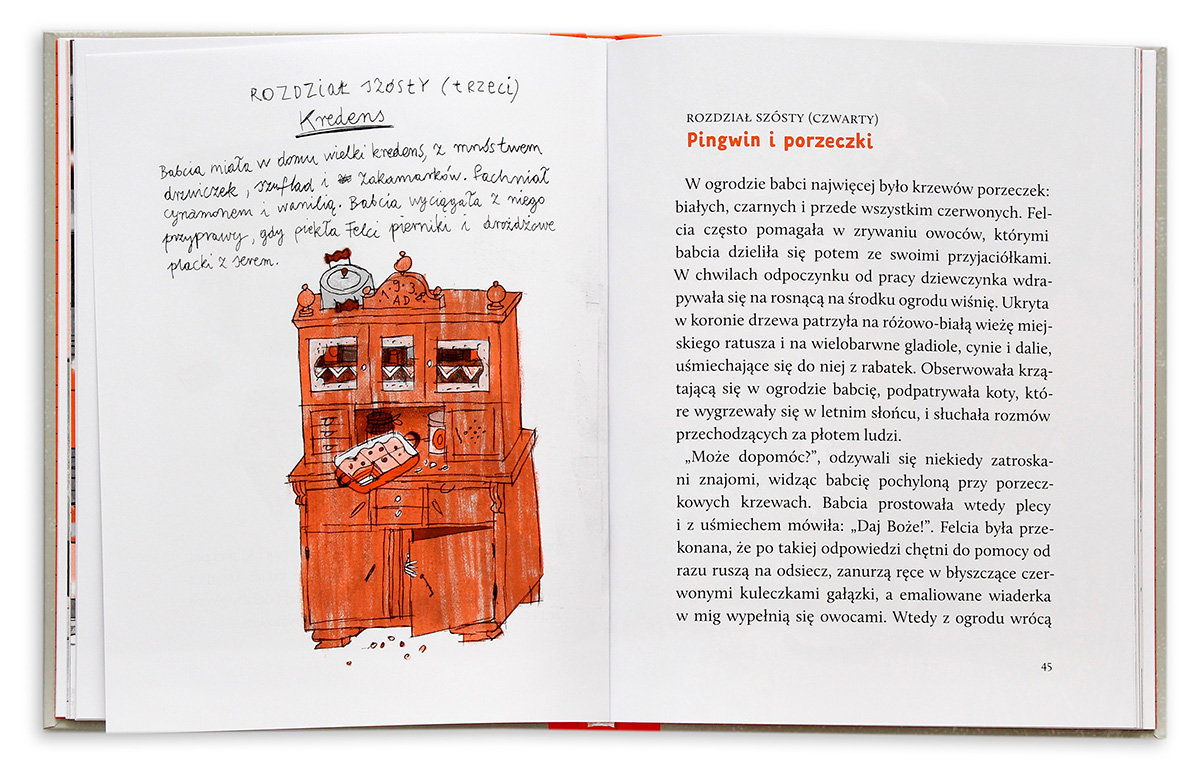 ROZDZIAŁ SZÓSTY (TRZECI)
Kredens
Babcia miała w domu wielki kredens, z mnóstwem
drzwiczek, szuflad i zakamarków. Pachniał
cynamonem i wanilią. Babcia wyciągała z niego
przyprawy, gdy piekła Felci pierniki i drożdżowe
placki z serem.
1.9.3.8.
AD
ROZDZIAŁ SZÓSTY (CZWARTY)
Pingwin i porzeczki
W ogrodzie babci najwięcej było krzewów porzeczek:
białych, czarnych i przede wszystkim czerwonych. Fel-
cia często pomagała w zrywaniu owoców, którymi
babcia dzieliła się potem ze swoimi przyjaciółkami.
W chwilach odpoczynku od pracy dziewczynka wdra-
pywała się na rosnącą na środku ogrodu wiśnię. Ukryta
w koronie drzewa patrzyła na różowo-białą wieżę miej-
skiego ratusza i na wielobarwne gladiole, cynie i dalie,
uśmiechające się do niej z rabatek. Obserwowała krzą-
tającą się w ogrodzie babcię, podpatrywała koty, któ-
re wygrzewały się w letnim słońcu, i słuchała rozmów
przechodzących za płotem ludzi.
„Może dopomóc?”, odzywali się niekiedy zatroska-
ni znajomi, widząc babcię pochyloną przy porzecz-
kowych krzewach. Babcia prostowała wtedy plecy
i z uśmiechem mówiła: „Daj Boże!”. Felcia była prze-
konana, że po takiej odpowiedzi chętni do pomocy od
razu ruszą na odsiecz, zanurzą ręce w błyszczące czer-
wonymi kuleczkami gałązki, a emaliowane wiaderka
w mig wypełnią się owocami. Wtedy z ogrodu wrócą
45